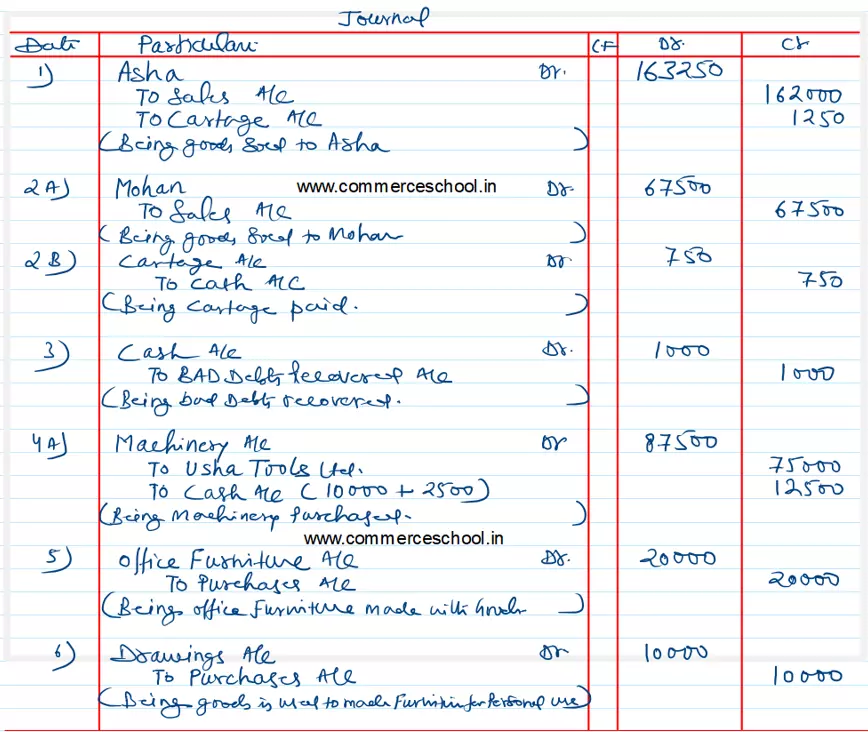 Journal
Date Particulars CF Dr. Cr
1) Asha Dr. 163250
To Sales A/c 162000
To Cartage A/c 1250
(Being goods Sold to Asha)
2A) Mohan www.commerceschool.in Dr. 67500
To Sales A/c 67500
(Being goods Sold to Mohan)
2B) Cartage A/c Dr 750
To Cash A/c 750
(Being Cartage paid.)
3) Cash A/c Dr. 1000
To BAD Debts Recovered A/c 1000
(Being bad Debts recovered.)
4A) Machinery A/c Dr 87500
To Usha Tools Ltd. 75000
To Cash A/c (10000 + 2500) 12500
(Being Machinery Purchased.)
www.commerceschool.in
5) Office Furniture A/c Dr. 20000
To Purchases A/c 20000
(Being office Furniture made with Goods)
6) Drawings A/c Dr 10000
To Purchases A/c 10000
(Being goods is used to made Furniture for Personal use)